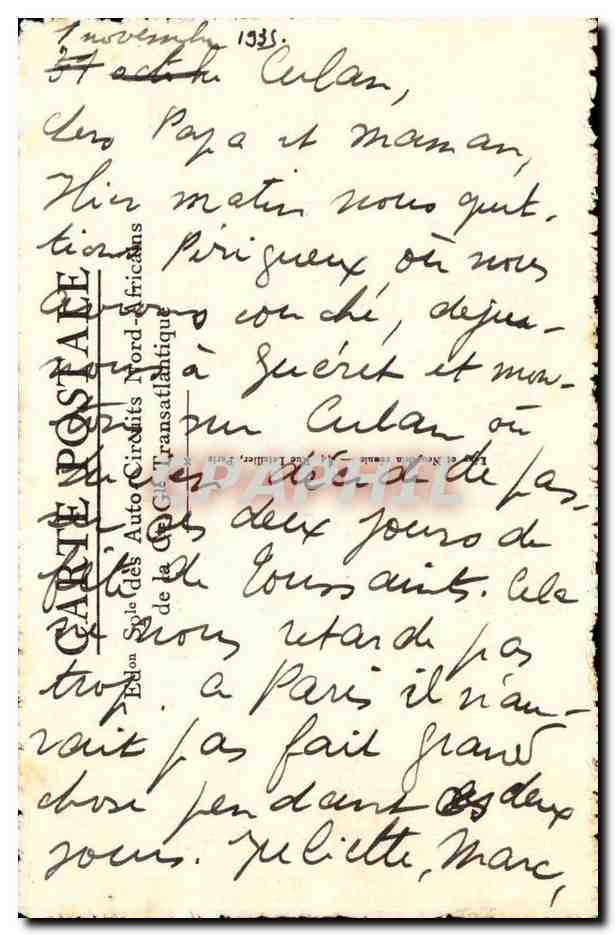 1 novembre 1935.
31 octobre Culan,
chers Papa et maman,
Hier matin nous quit-
tions Périgueux, où nous
avions couché, dejeu-
nions à Guéret et mon-
sur Culan où
décide de pas-
ser ces deux jours de
fête de Toussaints. Cela
ne nous retarde pas
trop. a Paris il n'au-
rait pas fait grand
chose pendant ces deux
jours. Juliette, Marc,
CARTE POSTALE
Edon Sole des Auto-Circuits Nord-Africains
de la Cie Gle Transatlantique
Lévy et Neurdein réunis — 44, Rue Letellier, Paris
CPAPHIL